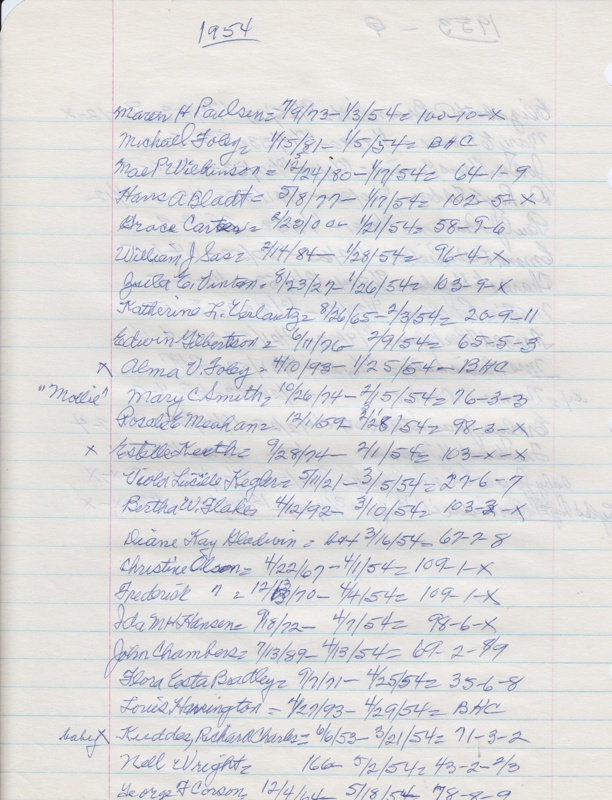 1954
Maren H Paulsen = 7/9/73 - 1/3/54 = 100-10-X
Michael Foley = 1/15/81 - 1/5/54 = BHC
Mae P Wilkinson = 12/24/80 - 1/17/54 = 64-1-9
Hans A Bladt = 5/8/77 - 1/17/54 = 102-5-X
Grace Carteen = 1/21/54 = 58-9-6
William J Sas = 2/14/84 - 1/28/54 = 96-4-X
Juila E. Vinton = 8/23/27 - 1/26/54 = 103-9-X
Katherine L. = 8/26/65 - 2/3/54 = 20-9-11
Edwin Gilbertson = 6/11/76 - 2/9/54 = 65-5-3
X Alma V. Foley = 4/10/93 - 1/25/54 - BHC
"Mollie" Mary C Smith = 10/26/74 - 2/15/54 = 76-3-3
Rosalie Meehan = 12/1/59 2/28/54 = 98-3-X
X Estelle Keeth = 9/28/74 - 2/1/54 = 103-X-X
Viola Lucille Kegler = 5/11/21 - 3/5/54 = 27-6-7
Bertha W Flakes 4/12/92 - 3/10/54 = 103-3-X
Diane Kay Gladwin = 3/16/54 - 67-7-8
Christine Olson = 4/22/67 - 4/1/54 = 109-1-X
Frederick " = 12/13/70 - 4/4/54 = 109-1-X
Ida M H Hansen = 9/18/72 - 4/7/54 = 98-6-X
John Chambers = 7/13/89 - 4/13/54 = 69-2-9
Flora Easta Bradley = 9/7/71 - 4/25/54 = 35-6-8
Louis Harrington = 4/27/93 - 4/29/54 = BHC
baby X Kuddes, Richard Charles = 6/6/53 - 3/21/54 = 71-3-2
Nell Wright = 166 - 5/2/54 = 43-2-2/3
George F Corson = 12/4/64 - 5/18/54 = 78-8-9